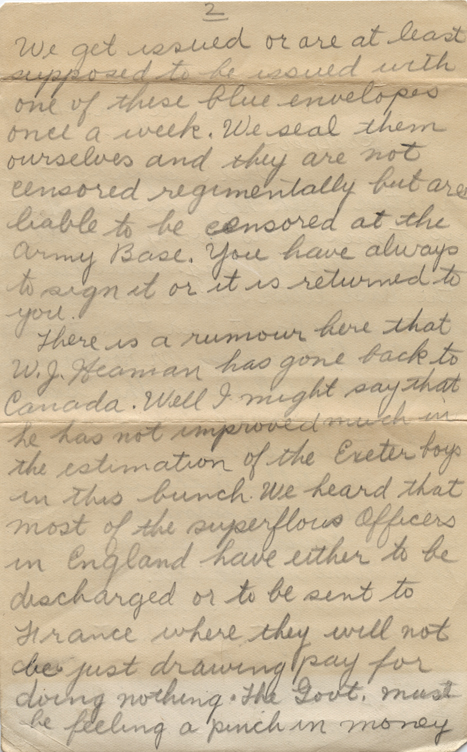 2
We get issued or are at least
supposed to be issued with
one of these blue envelopes
once a week. We seal them
ourselves and they are not
censored regimentally but are
liable to be censored at the
Army Base. You have always
to sign it or it is returned to
you.
There is a rumour here that
W.J. Heaman has gone back to
Canada. Well I might say that
he has not improved much in
the estimation of the Exeter boys
in this bunch. We heard that
most of the superflous Officers
in England have either to be
discharged or to be sent to
France where they will not
be just drawing pay for
doing nothing. The Govt. must
be feeling a pinch in money